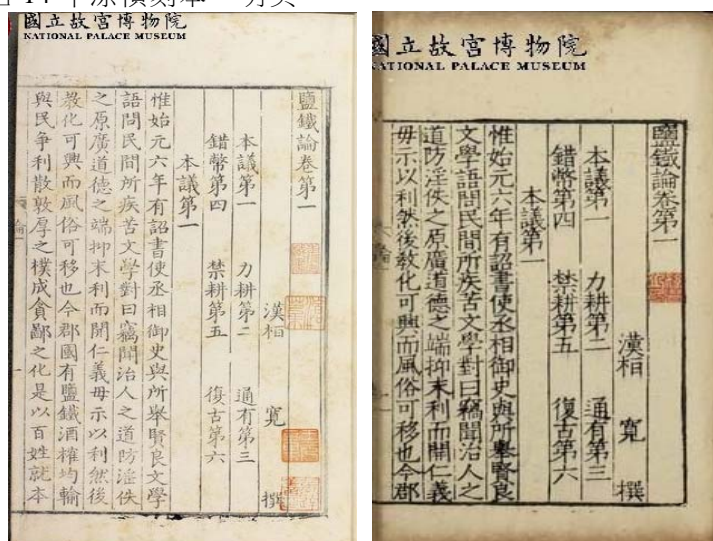 國立故宮博物院
NATIONAL PALACE MUSEUM
鹽鐵論卷第一
漢桓 寬 撰
本議第一 力耕第二 通有第三
錯幣第四 禁耕第五 復古第六
本議第一
惟始元六年有詔書使丞相御史與所舉賢良文學
語問民間所疾苦文學對曰竊聞治人之道防淫佚
之原廣道德之端抑末利而開仁義毋示以利然後
教化可興而風俗可移也今郡國有鹽鐵酒榷均輸
與民争利散敦厚之樸成貪鄙之化是以百姓就本
國立故宮博物院
NATIONAL PALACE MUSEUM
鹽鐵論卷第一
漢桓 寬 撰
本議第一 力耕第二 通有第三
錯幣第四 禁耕第五 復古第六
本議第一
惟始元六年有詔書使丞相御史與所舉賢良
文學語問民間所疾苦文學對曰竊聞治人之
道防淫佚之原廣道德之端抑末利而開仁義
毋示以利然後教化可興而風俗可移也今郡